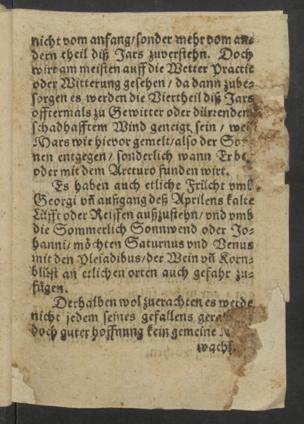 nicht vom anfang/sonder mehr vom an⸗
dern theil diß Jars zuverstehn. Doch
wirt am meisten auff die Wetter Practic
oder Witterung gesehen / da dann zube⸗
sorgen es werden die Viertheil diß Jars
offtermals zu Gewitter oder dürrendem
schadhafftem Wind geneigt sein /
Mars wie hievor gemelt/also der
nen entgegen / sonderlich wann
oder mit dem Arcturo funden wirt.
Es haben auch etliche Frücht vmb
Georgi vñ außgang deß Aprilens kalte
Lüfft oder Reiffen außzustehn / vnd vmb
die Sommerlich Sonnwend oder Jo⸗
hanni/ möchten Saturnus vnd Venus
mit den Pleiadibus / der Wein vñ Korn⸗
blüst an etlichen orten auch gefahr zu⸗
fügen.
Derhalben wol zuerachten es werde
nicht jedem seines gefallens
doch guter hoffnung kein gemeine